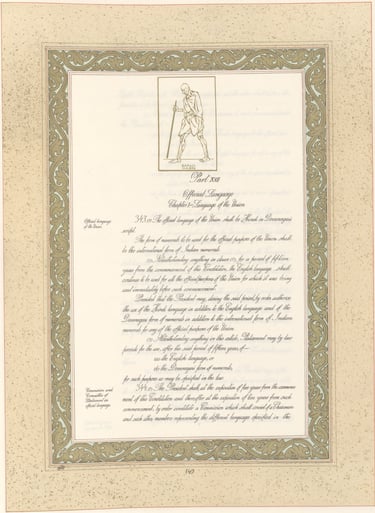 Part XVII
Official Language
Chapter I.-Language of the Union
Official language
of the Union.
343. (1) The official language of the Union shall be Hindi in Devanagari
script.
The form of numerals to be used for the official purposes of the Union shall
be the international form of Indian numerals.
(2) Notwithstanding anything in clause (1), for a period of fifteen
years from the commencement of this Constitution, the English language shall
continue to be used for all the official purposes of the Union for which it was being
used immediately before such commencement:
Provided that the President may, during the said period, by order authorise
the use of the Hindi language in addition to the English language and of the
Devanagari form of numerals in addition to the international form of Indian
numerals for any of the official purposes of the Union.
(3) Notwithstanding anything in this article, Parliament may by law
provide for the use, after the said period of fifteen years, of—
(a) the English language, or
(b) the Devanagari form of numerals,
for such purposes as may be specified in the law.
Commission and
Committee of
Parliament on
official language.
344. (1) The President shall, at the expiration of five years from the commence
ment of this Constitution and thereafter at the expiration of ten years from such
commencement, by order constitute a Commission which shall consist of a Chairman
and such other members representing the different languages specified in the